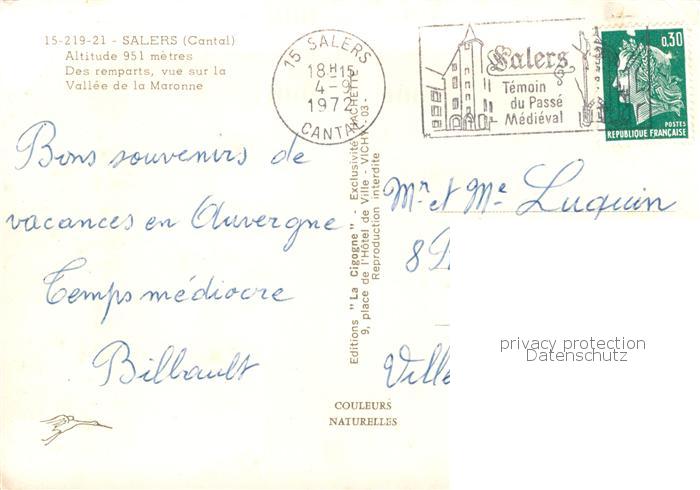 15-219-21 - SALERS (Cantal)
Altitude 951 mètres
Des remparts, vue sur la
Vallée de la Maronne
15 SALERS
18H15
4-9
1972
CANTAL
Salers
Témoin
du Passé
Médiéval
0,30
POSTES
REPUBLIQUE FRANÇAISE
Bons souvenirs de
vacances en Auvergne
Temps médiocre
Billault
Editions "La Cigogne" - Exclusivité HACHETTE
9, place de l'Hôtel de Ville - VICHY - 03 -
Reproduction interdite
Mr et Me Luquin
8
Ville
privacy protection
Datenschutz
COULEURS
NATURELLES